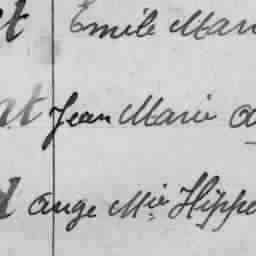 t Emile Mari
nt Jean Marie
d Ange Mie Hippo